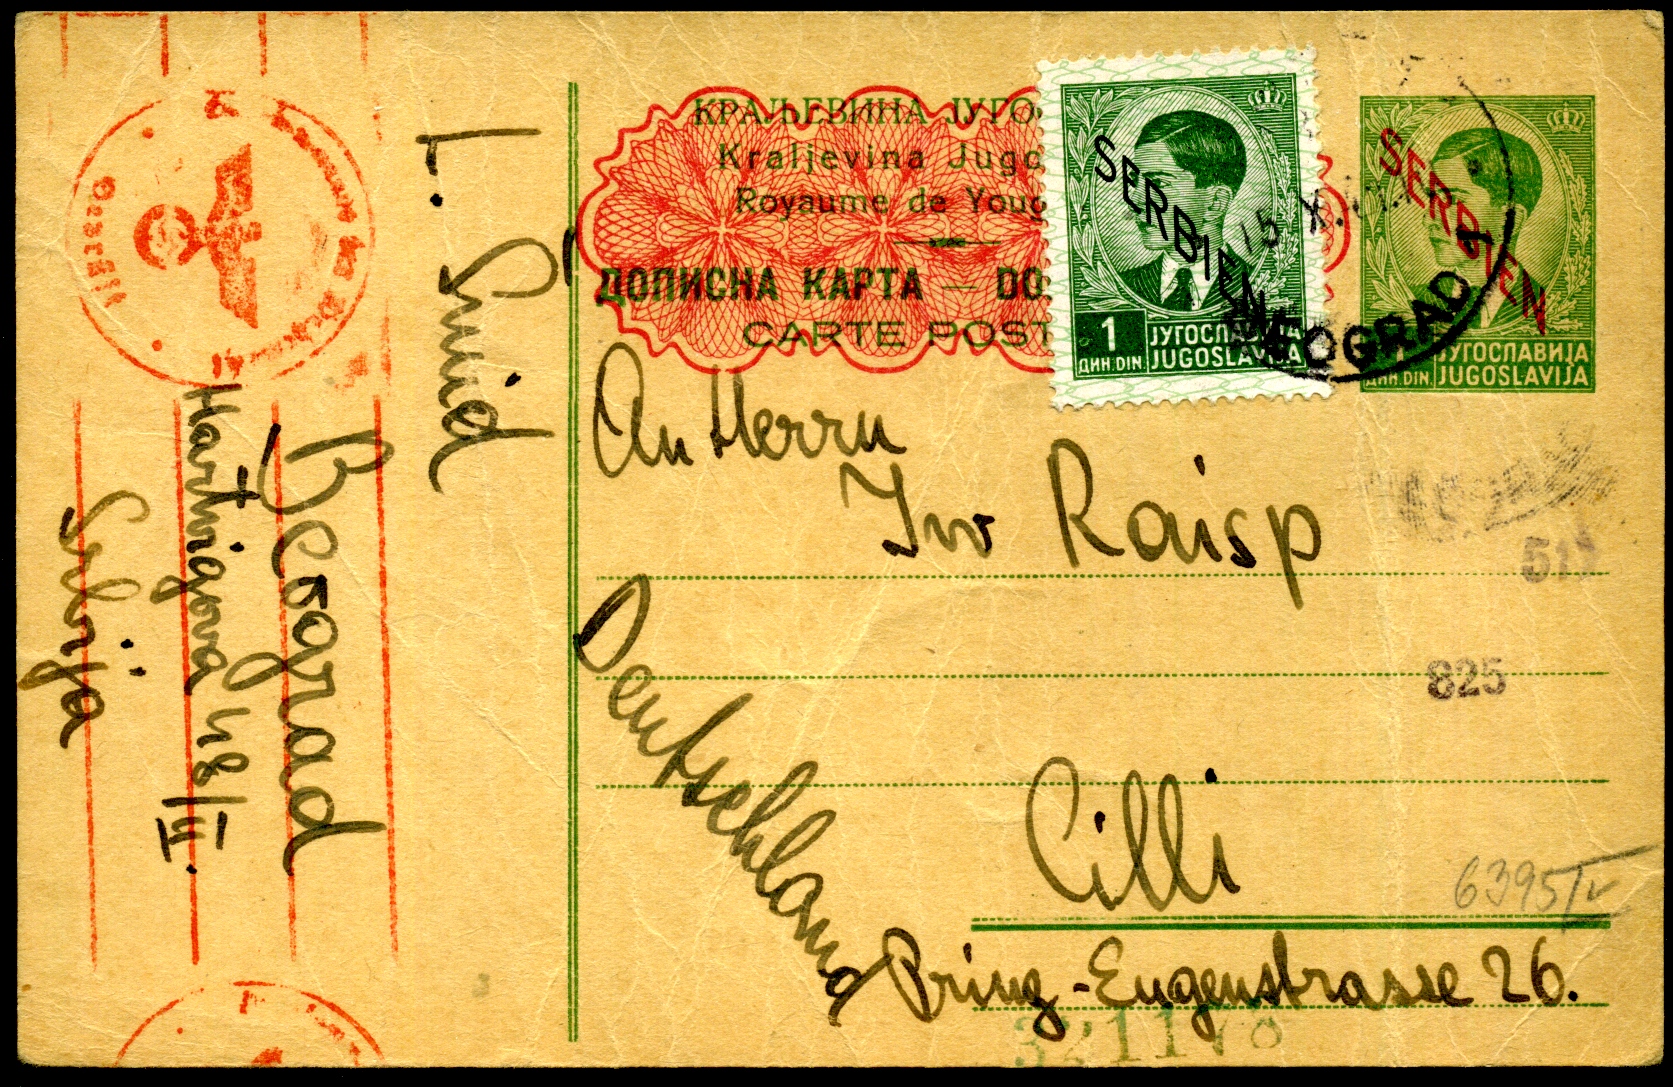 L. Šmid
Beograd
Hartvigova 48/II.
Srbija
КРАЉЕВИНА ЈУГО
Kraljevina Jugo
Royaume de Youg
ДОПИСНА КАРТА — DO
CARTE POST
SERBIEN
1
ДИН. DIN.
ЈУГОСЛАВИЈА
JUGOSLAVIJA
SERBIEN
ДИН. DIN.
ЈУГОСЛАВИЈА
JUGOSLAVIJA
15 X.
BEOGRAD
An Herrn
Ivo Raisp
Deutschland
825
Cilli
6395/IV
Prinz-Eugenstrasse 26.